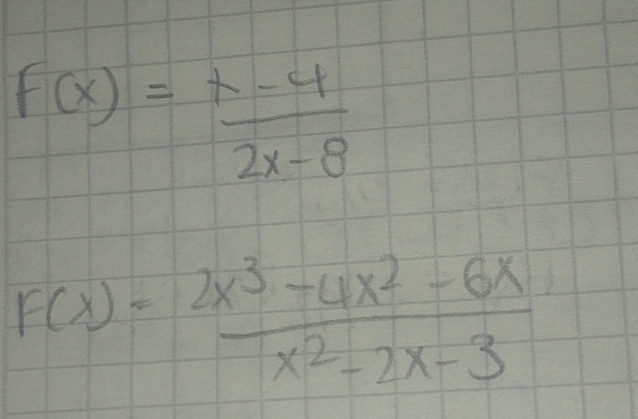 F(x) = x - 4
2x - 8
F(x) = 2x³ - 4x² - 6x
x² - 2x - 3